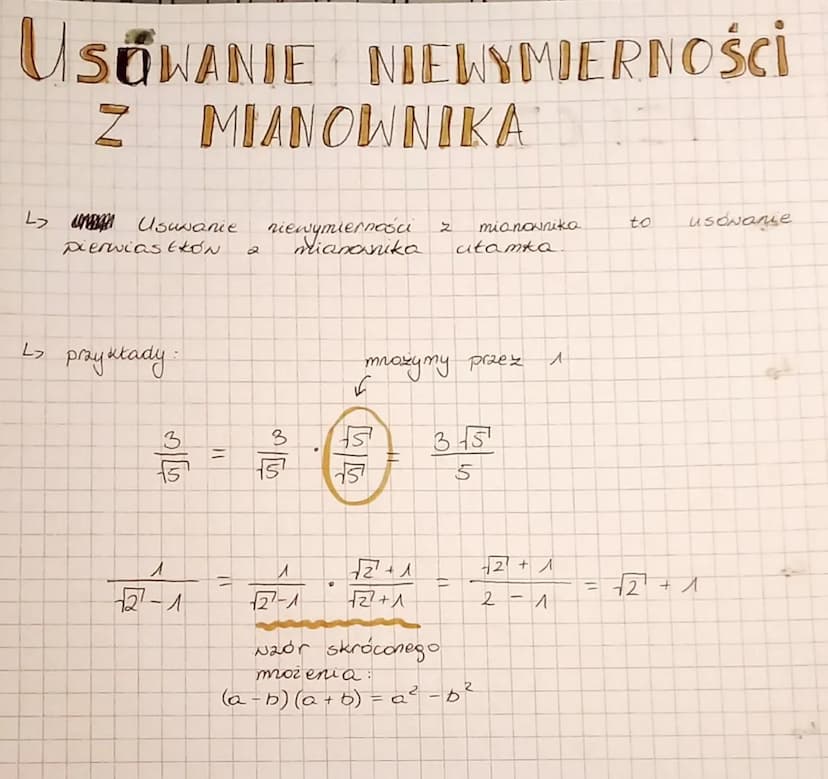 USÓWANIE NIEWYMIERNOŚCI
Z MIANOWNIKA
↳ Usuwanie niewymierności z mianownika to usówanie
pierwiastków z mianownika ułamka.
↳ przykłady:
mnożymy przez 1
3/√5 = 3/√5 · √5/√5 = 3√5/5
1/(√2 - 1) = 1/(√2 - 1) · (√2 + 1)/(√2 + 1) = (√2 + 1)/(2 - 1) = √2 + 1
wzór skróconego
możenia:
(a - b)(a + b) = a² - b²